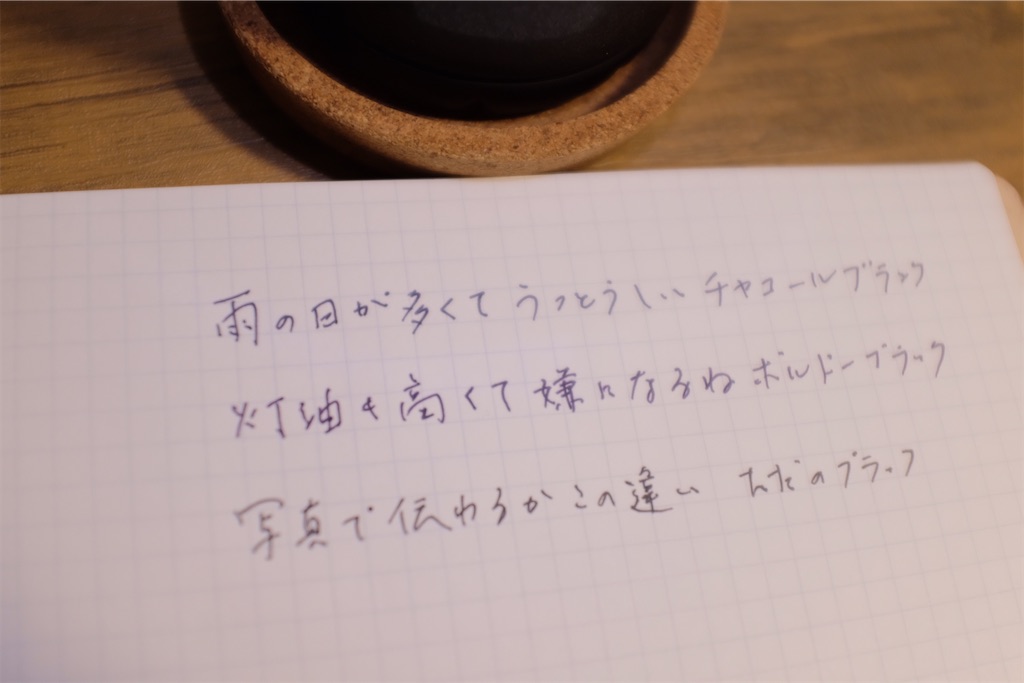 雨の日が多くてうっとうしい チャコールブラック
灯油も高くて嫌になるね ボルドーブラック
写真で伝わるかこの違い ただのブラック